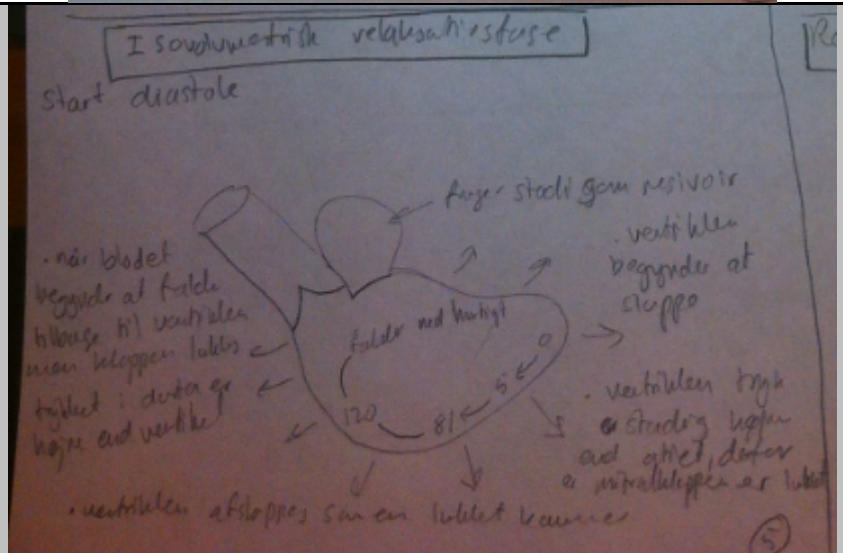 Isovolumetrisk relaksationsfase
Start diastole
fungerer stadig som resivoir
• ventriklen
begynder at
slappe
• når blodet
begynder at falde
tilbage til ventriklen
men klappen lukkes
trykket i aorta er
højre end ventrikel
falder ned hurtigt
0
5
81
120
• ventriklen tryk
er stadig højere
end atriet, derfor
er mitralklappen er lukket
• ventriklen afslappes som en lukket kammer
5